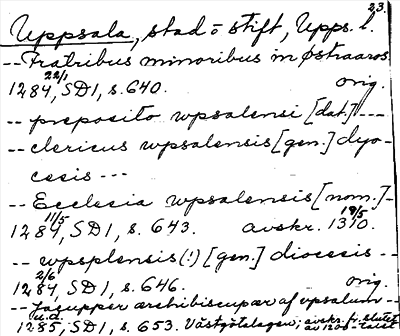 23.
Uppsala, stad o stift, Upps. l.
-- Fratribus minoribus in østraaros
22/1
1284, SD1, s. 640. orig.
-- preposito wpsalensi [dat.] ---
-- clericus wpsalensis [gen.] dyo-
cesis ---
-- Ecclesia wpsalensis [nom.] --
11/5 19/5
1284, SD1, s. 643. avskr. 1310.
-- wpsplensis (!) [gen.] diocesis --
2/6
1284, SD1, s. 646. orig.
-- iasupper ærchibiscupær af vpsalum --
1285, SD1, s. 653. Västgötalagen; avskr. fr. slutet
av 1200-talet